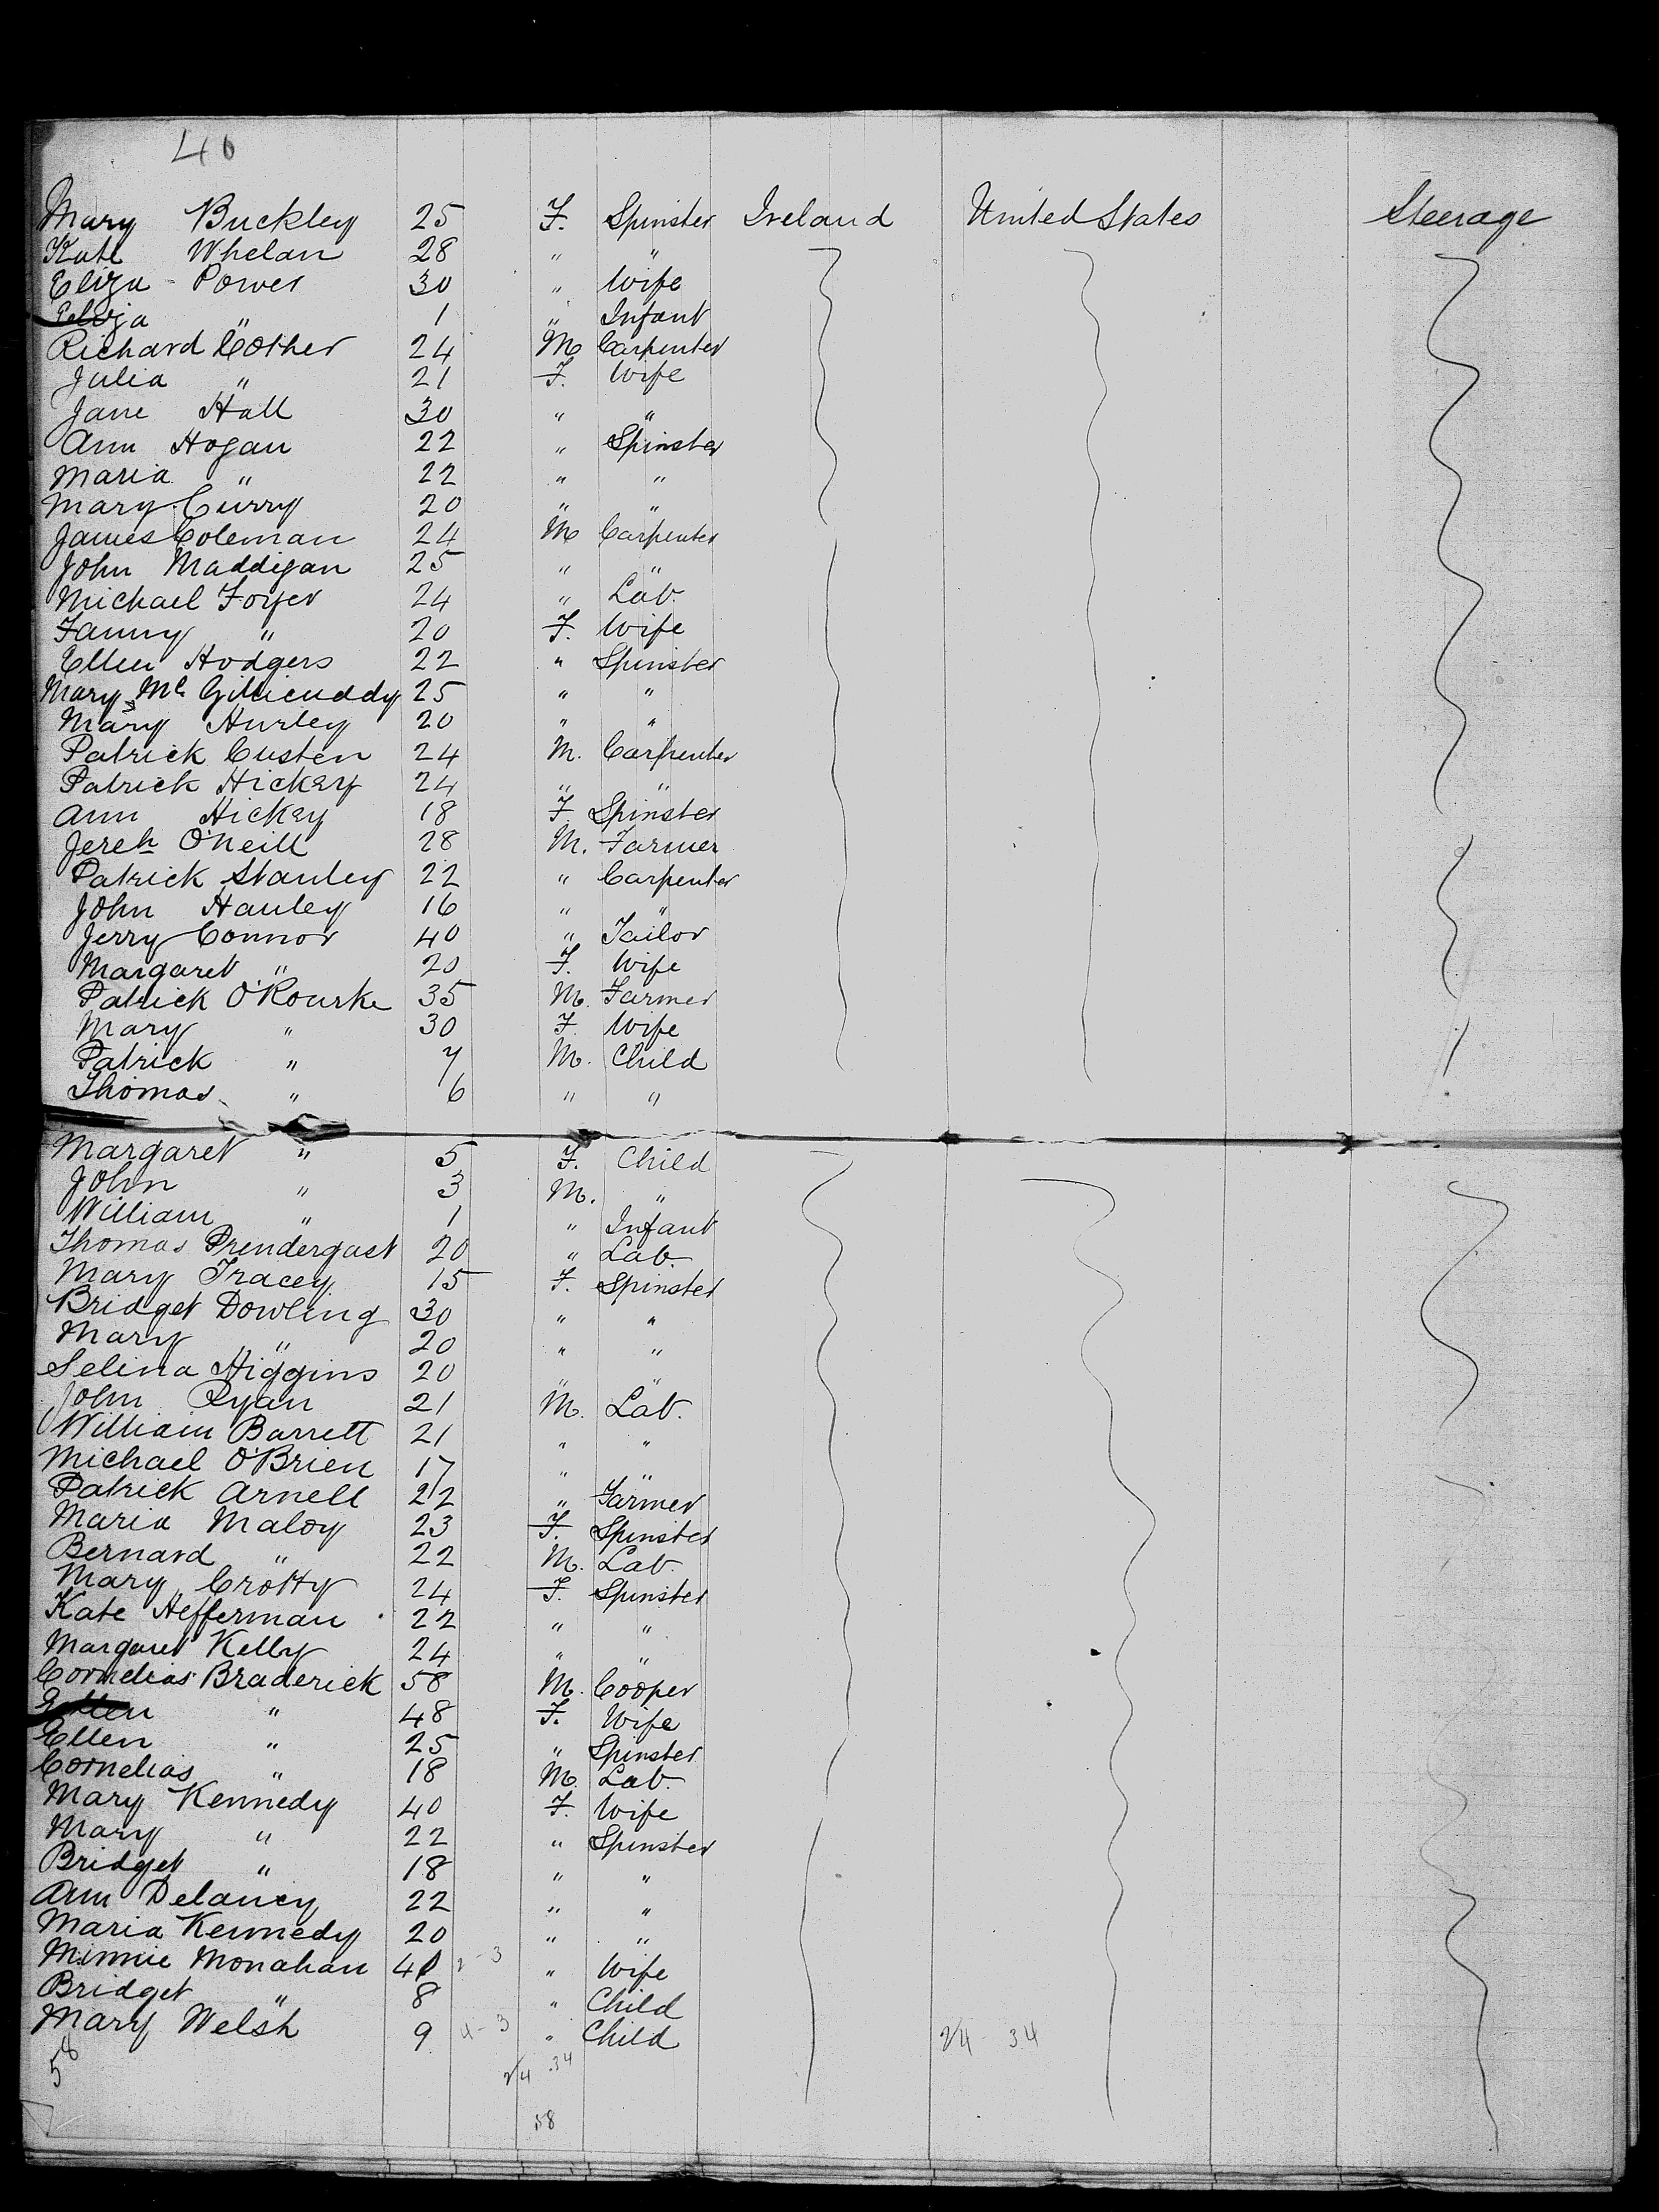 40
Mary Buckley 25 F. Spinster Ireland United States Steerage
Kate Whelan 28 " "
Eliza Power 30 " Wife
Eliza " 1 " Infant
Richard Cother 24 M Carpenter
Julia " 21 F. Wife
Jane Hall 30 " "
Ann Hogan 22 " Spinster
Maria " 22 " "
Mary Curry 20 " "
James Coleman 24 M Carpenter
John Maddigan 25 " "
Michael Foyer 24 " Lab.
Fanny " 20 F. Wife
Ellen Hodgers 22 " Spinster
Mary Mc Gillicuddy 25 " "
Mary Hurley 20 " "
Patrick Custen 24 M. Carpenter
Patrick Hickey 24 " "
Ann Hickey 18 F Spinster
Jereh O'Neill 28 M. Farmer
Patrick Stanley 22 " Carpenter
John Hanley 16 " "
Jerry Connor 40 " Tailor
Margaret " 20 F. Wife
Patrick O'Rourke 35 M. Farmer
Mary " 30 F. Wife
Patrick " 7 M. Child
Thomas " 6 " "
Margaret " 5 F. Child
John " 3 M. "
William " 1 " Infant
Thomas Prendergast 20 " Lab.
Mary Tracey 15 F. Spinster
Bridget Dowling 30 " "
Mary " 20 " "
Selina Higgins 20 " "
John Ryan 21 M. Lab.
William Barrett 21 " "
Michael O'Brien 17 " "
Patrick Arnell 22 " Farmer
Maria Maloy 23 F. Spinster
Bernard " 22 M. Lab.
Mary Crotty 24 F. Spinster
Kate Hefferman 22 " "
Margaret Kelly 24 " "
Cornelias Braderick 58 M. Cooper
Ellen " 48 F. Wife
Ellen " 25 " Spinster
Cornelias " 18 M. Lab.
Mary Kennedy 40 F. Wife
Mary " 22 " Spinster
Bridget " 18 " "
Ann Delaney 22 " "
Maria Kennedy 20 " "
Minnie Monahan 40 " Wife
Bridget " 8 " Child
Mary Welsh 9 4-3 " Child 24-34
58 24 34
58